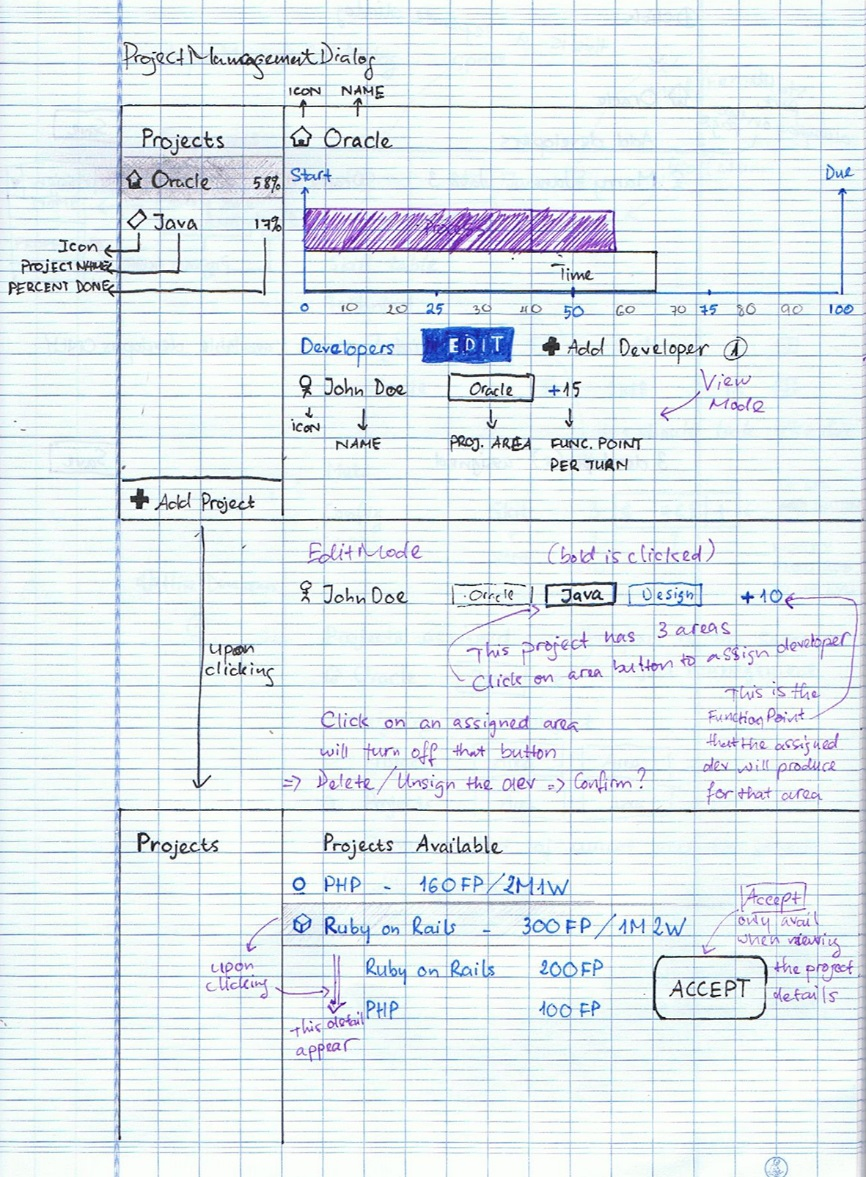 ProjectManagementDialog
ICON NAME
Projects
Oracle
Oracle 58%
Start
Due
Java 17%
Icon
PROJECT NAME
PERCENT DONE
Time
0 10 20 25 30 40 50 60 70 75 80 90 100
Developers EDIT Add Developer 1
John Doe Oracle +15
View
Mode
ICON
NAME
PROJ. AREA
FUNC. POINT
PER TURN
Add Project
Edit Mode (bold is clicked)
John Doe Oracle Java Design +10
upon
clicking
This project has 3 areas
Click on area button to assign developer
This is the
Function Point
that the assigned
dev will produce
for that area
Click on an assigned area
will turn off that button
=> Delete/Unsign the dev => Confirm?
Projects
Projects Available
PHP - 160FP/2M1W
Ruby on Rails - 300FP/1M2W
Ruby on Rails 200FP
PHP 100FP
upon
clicking
This detail
appear
ACCEPT
Accept
only avail
when viewing
the project
details